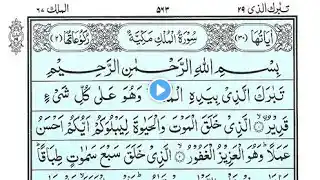 تبٰرك الذی ٢٩ ٥٦٣ الملك ٦٧
اٰیاتها (٣٠) سُوْرَةُ الْمُلْكِ مَكِّيَّةٌ رُكُوْعَاتُهَا (٢)
بِسْمِ اللهِ الرَّحْمٰنِ الرَّحِيْمِ
تَبٰرَكَ الَّذِيْ بِيَدِهِ وَهُوَ عَلٰى كُلِّ شَيْءٍ
قَدِيْرُ ۙ الَّذِيْ خَلَقَ الْمَوْتَ وَالْحَيٰوةَ لِيَبْلُوَكُمْ اَيُّكُمْ اَحْسَنُ
عَمَلًا ؕ وَهُوَ الْعَزِيْزُ الْغَفُوْرُ ۙ الَّذِيْ خَلَقَ سَبْعَ سَمٰوٰتٍ طِبَاقًا ؕ